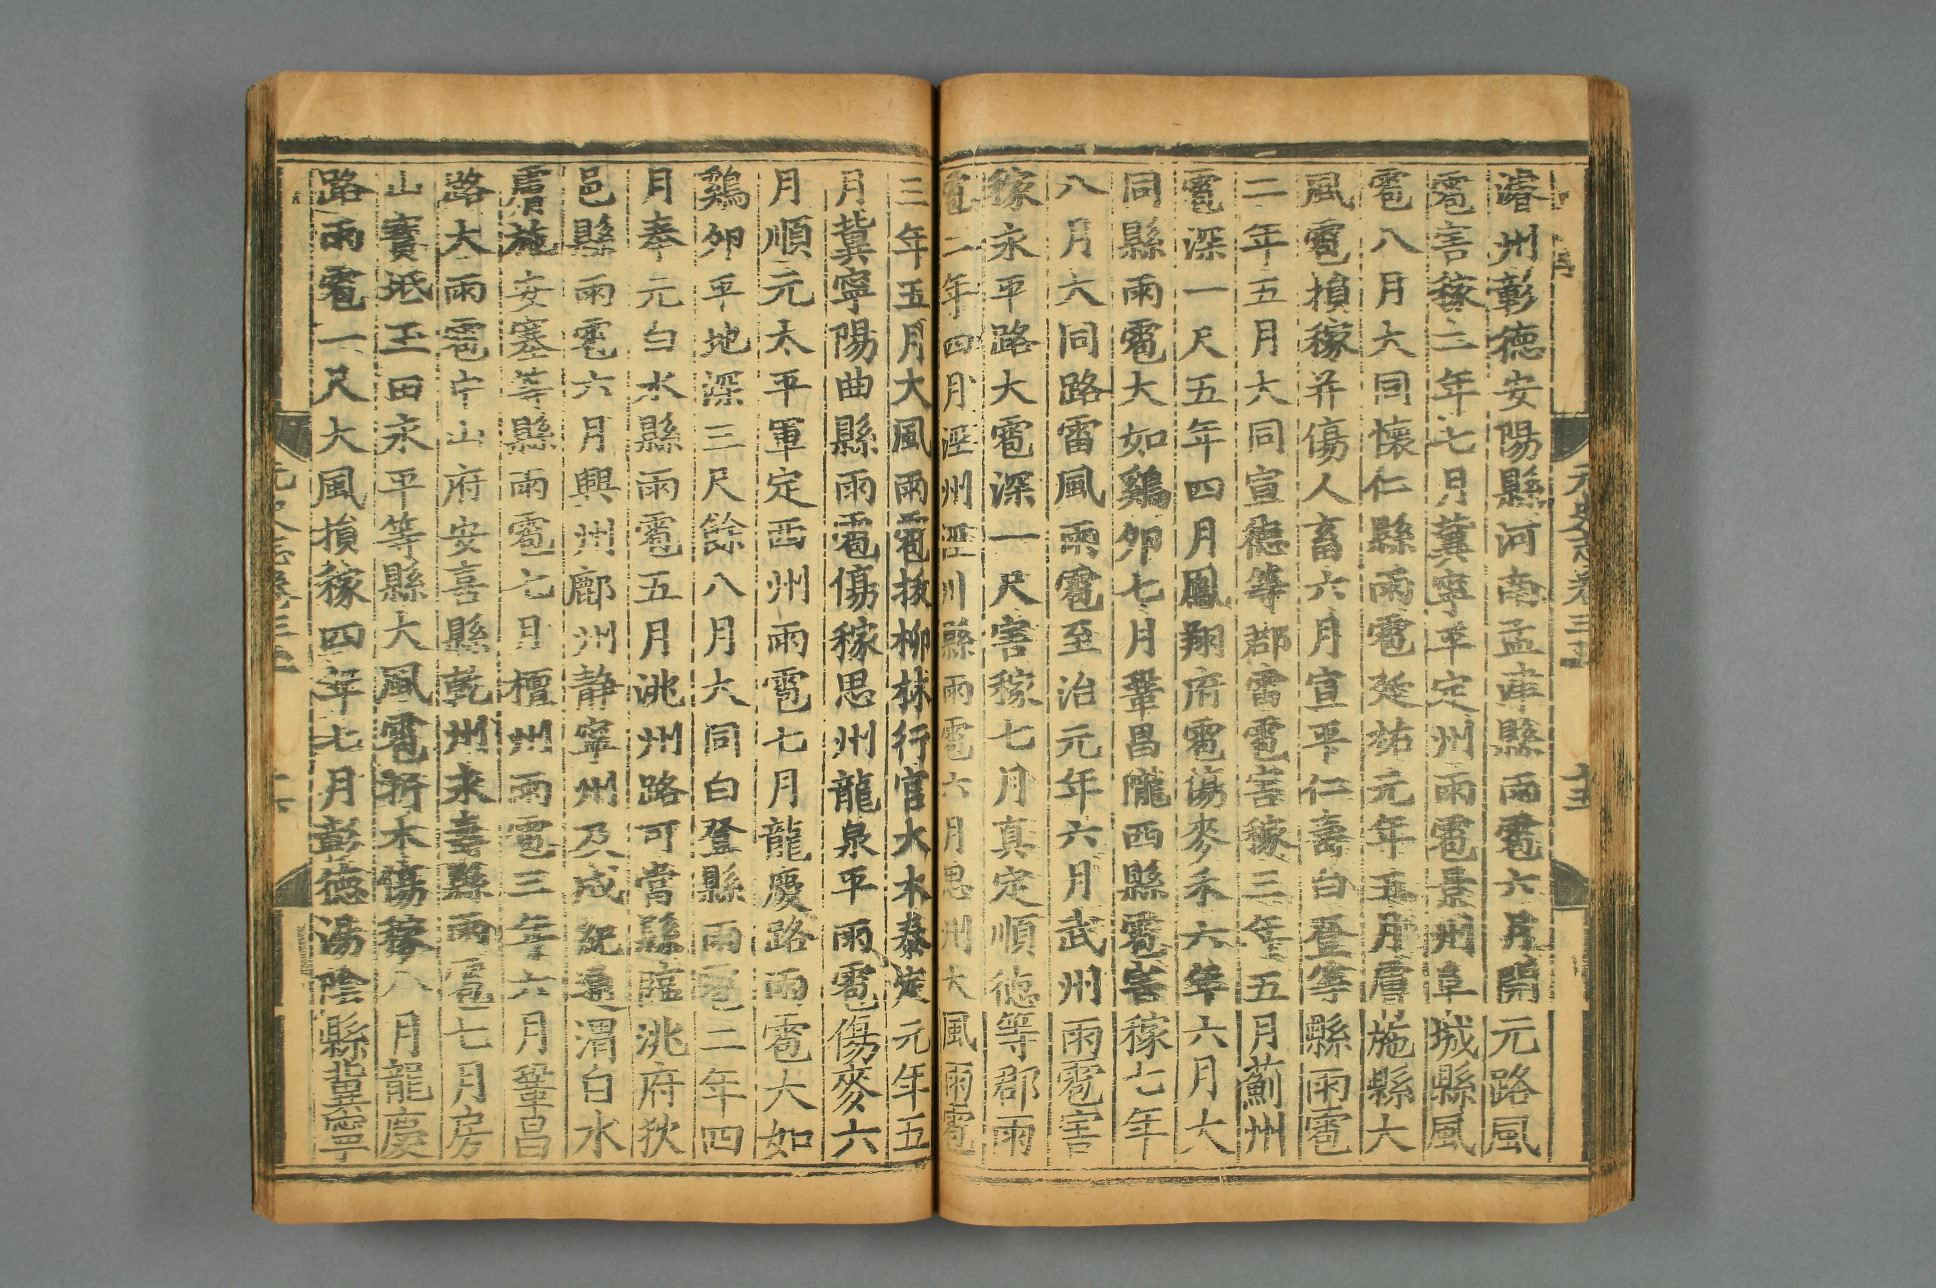 濬州彰德安陽縣河南孟津縣雨雹六月開元路風
雹害稼三年七月冀寧平定州雨雹景州阜城縣風
雹八月大同懷仁縣雨雹延祐元年五月膚施縣大
風雹損稼并傷人畜六月宣平仁壽白登等縣雨雹
二年五月大同宣德等郡雷雹害稼三年五月薊州
雹深一尺五年四月鳳翔府雹傷麥禾六年六月大
同縣雨雹大如鷄卵七月鞏昌隴西縣雹害稼七年
八月大同路雷風雨雹至治元年六月武州雨雹害
稼永平路大雹深一尺害稼七月真定順德等郡雨
雹二年四月涇州涇川縣雨雹六月思州大風雨雹
三年五月大風雨雹拔柳林行宫大木泰定元年五
月冀寧陽曲縣雨雹傷稼思州龍泉平雨雹傷麥六
月順元太平軍定西州雨雹七月龍慶路雨雹大如
鷄卵平地深三尺餘八月大同白登縣雨雹二年四
月奉元白水縣雨雹五月洮州路可當縣臨洮府狄
邑縣雨雹六月興州鄜州静寧州及成紀通渭白水
膚施安塞等縣雨雹七月檀州雨雹三年六月鞏昌
路大雨雹中山府安喜縣乾州永壽縣雨雹七月房
山寶坻玉田永平等縣大風雹折木傷稼八月龍慶
路雨雹一尺大風損稼四年七月彰德湯陰縣冀寧
元史志卷三上
十五